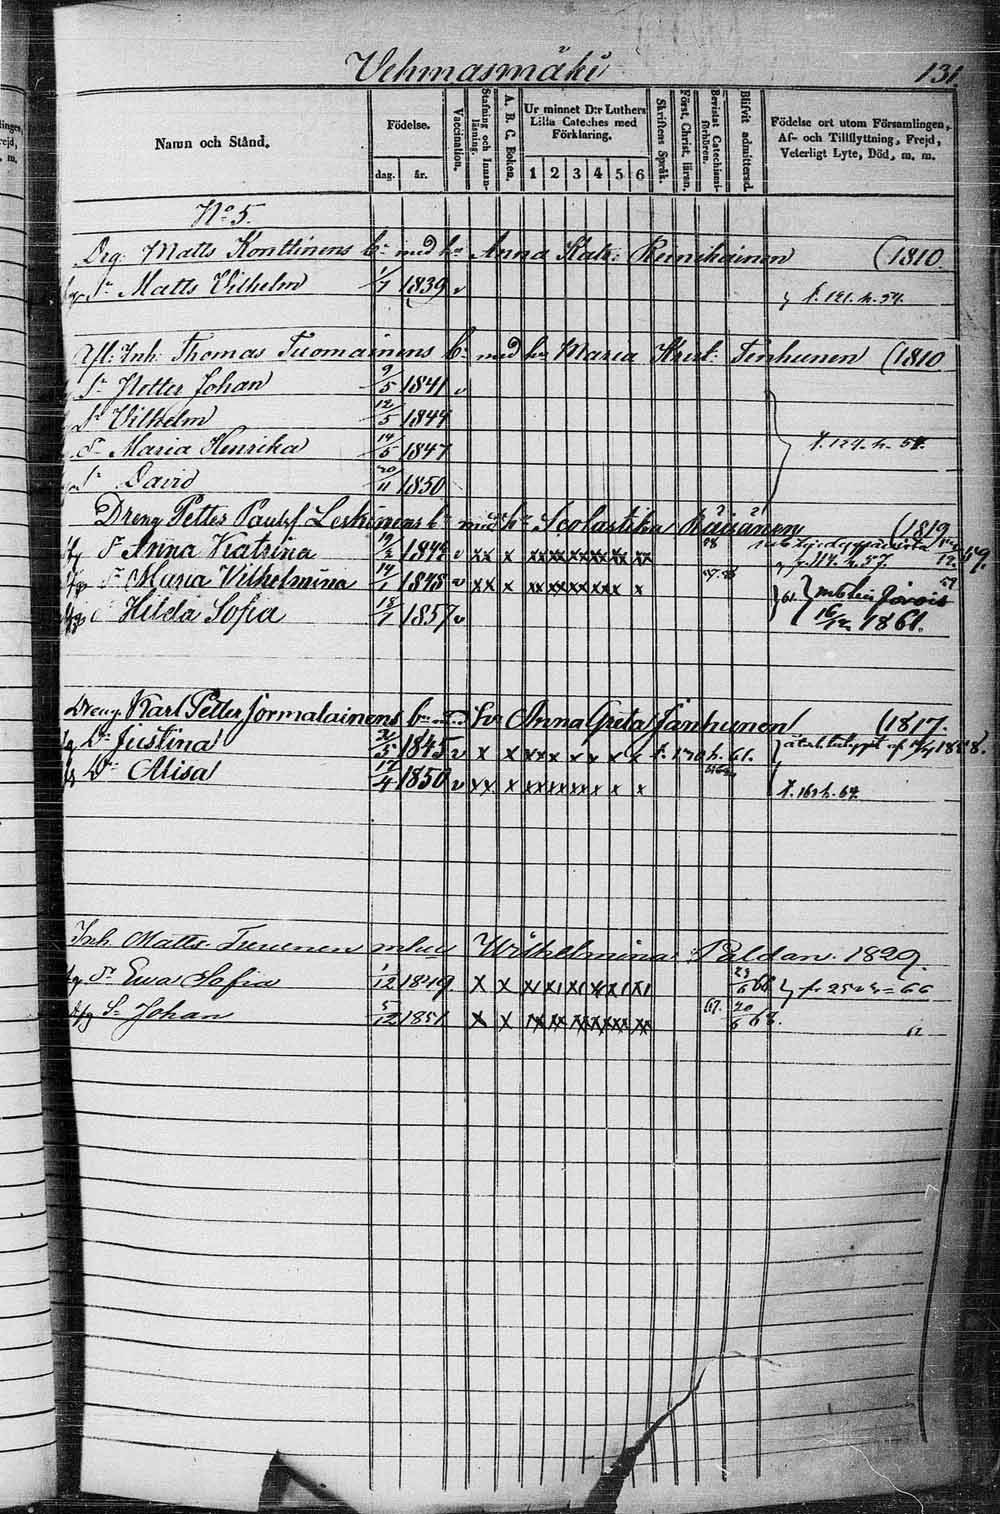 Vehmasmäki 131.
Namn och Stånd.
Födelse.
dag.
år.
Vaccination.
Stafning och Innanläsning.
A. B. C. Boken.
Ur minnet D:r Luthers Lilla Cateches med Förklaring.
1 2 3 4 5 6
Skriftens Språk.
Först. Christ. läran.
Bevistat Catechismiförhören.
Blifvit admitterad.
Födelse ort utom Församlingen, Af- och Tillflyttning, Frejd, Veterligt Lyte, Död, m. m.
No 5.
Drg. Matts Konttinens bn med hu Anna Katr: Reinikainen (1810.
Sn Matts Vilhelm 1/7 1839 v
Inh: Thomas Tuomainens bn med hu Maria Krist: Tenhunen (1810
Sn Petter Johan 9/5 1841 v
Sn Vilhelm 12/5 1844
Maria Henrika 14/5 1847
Sn David 20/11 1850
Dreng Petter Paulsf Leskinens bn med hu Scolastika Räisänen (1819
Anna Katrina 1842 v xx x xx xx xx xx xx xx 58
Maria Vilhelmina 14/1 1848 v xx x xx xx xx xx x x
Hilda Sofia 18/1 1857 v 1861.
Dreng Karl Petter Jormalainens bn med hu Anna Greta Janhunen (1817.
Dr Justina 1845 v x x x x x x x x x f. 170 h. 61.
Dr Alisa 17/4 1850 v xx x xx xx xx x x x f. 169 h. 64.
Inh. Matts Turunen m hu Wilhelmina Paldan. 1829.
Ewa Sofia 1/12 1849. x x x x x x x x 66
Sn Johan 5/12 1851 x x xx xx xx xx xx xx 67. 20/6 68.